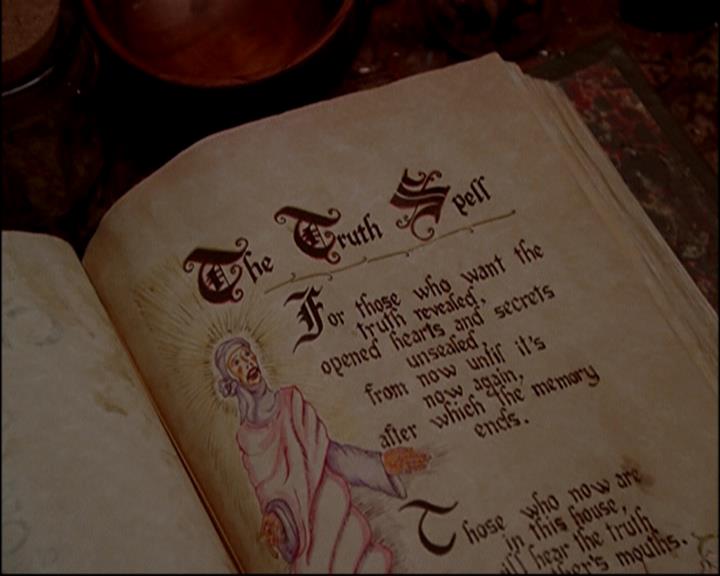 The Truth Spell
For those who want the
truth revealed,
opened hearts and secrets
unsealed,
from now until it's
now again,
after which the memory
ends.
Those who now are
in this house,
hear the truth
mouths.